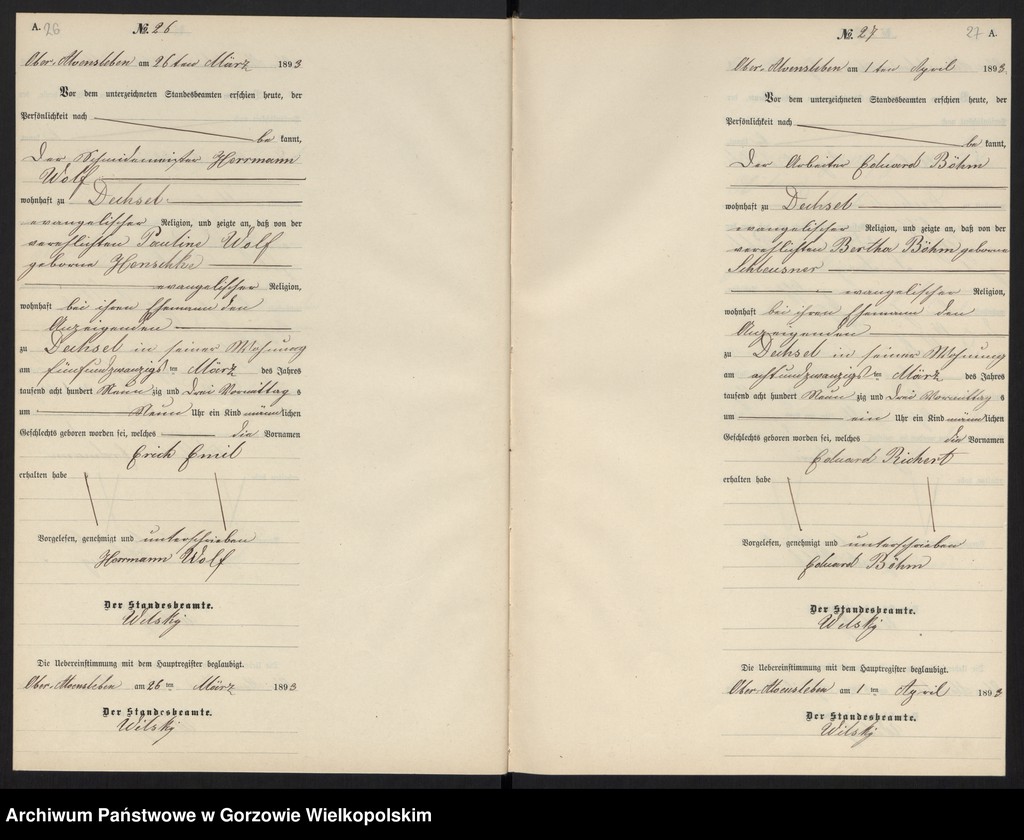 A. 26
№. 26
Ober-Alvensleben am 26ten März 1893
Vor dem unterzeichneten Standesbeamten erschien heute, der
Persönlichkeit nach
be kannt,
Der Schmidemeister Herrmann
Wolf
wohnhaft zu Dechsel
evangelischer Religion, und zeigte an, daß von der
verehlichten Pauline Wolf
geborne Henschke
evangelischer Religion,
wohnhaft bei ihren Ehemann den
Anzeigenden
zu Dechsel in seiner Wohnung
am fünfundzwanzigs ten März des Jahres
tausend acht hundert Neun zig und drei Vormittag s
um Neun Uhr ein Kind männlichen
Geschlechts geboren worden sei, welches die Vornamen
Erich Emil
erhalten habe
Vorgelesen, genehmigt und unterschrieben
Herrmann Wolf
Der Standesbeamte.
Wilsky
Die Uebereinstimmung mit dem Hauptregister beglaubigt.
Ober-Alvensleben am 26 ten März 1893
Der Standesbeamte.
Wilsky
№. 27
27 A.
Ober-Alvensleben am 1 ten April 1893.
Vor dem unterzeichneten Standesbeamten erschien heute, der
Persönlichkeit nach
be kannt,
Der Arbeiter Eduard Böhm
wohnhaft zu Dechsel
evangelischer Religion, und zeigte an, daß von der
verehlichten Bertha Böhm geborne
Schleusner
evangelischer Religion,
wohnhaft bei ihren Ehemann den
Anzeigenden
zu Dechsel in seiner Wohnung
am achtundzwanzigs ten März des Jahres
tausend acht hundert Neun zig und drei Vormittag s
um ein Uhr ein Kind männlichen
Geschlechts geboren worden sei, welches die Vornamen
Eduard Richert
erhalten habe
Vorgelesen, genehmigt und unterschrieben
Eduard Böhm
Der Standesbeamte.
Wilsky
Die Uebereinstimmung mit dem Hauptregister beglaubigt.
Ober-Alvensleben am 1 ten April 1893
Der Standesbeamte.
Wilsky
Archiwum Państwowe w Gorzowie Wielkopolskim